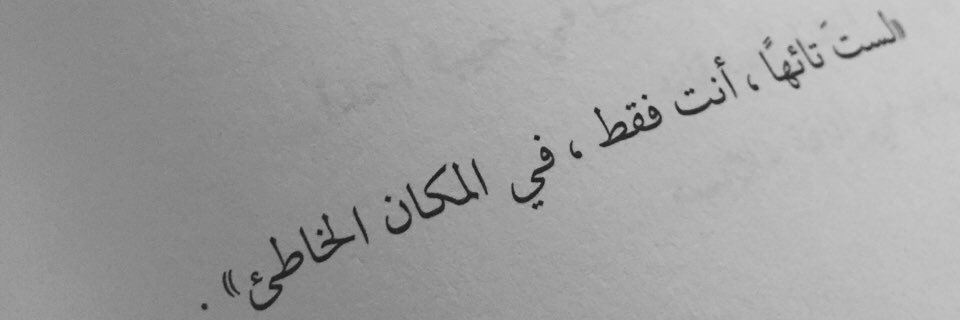 «لستَ تائهًا ، أنت فقط ، في المكان الخاطئ» .